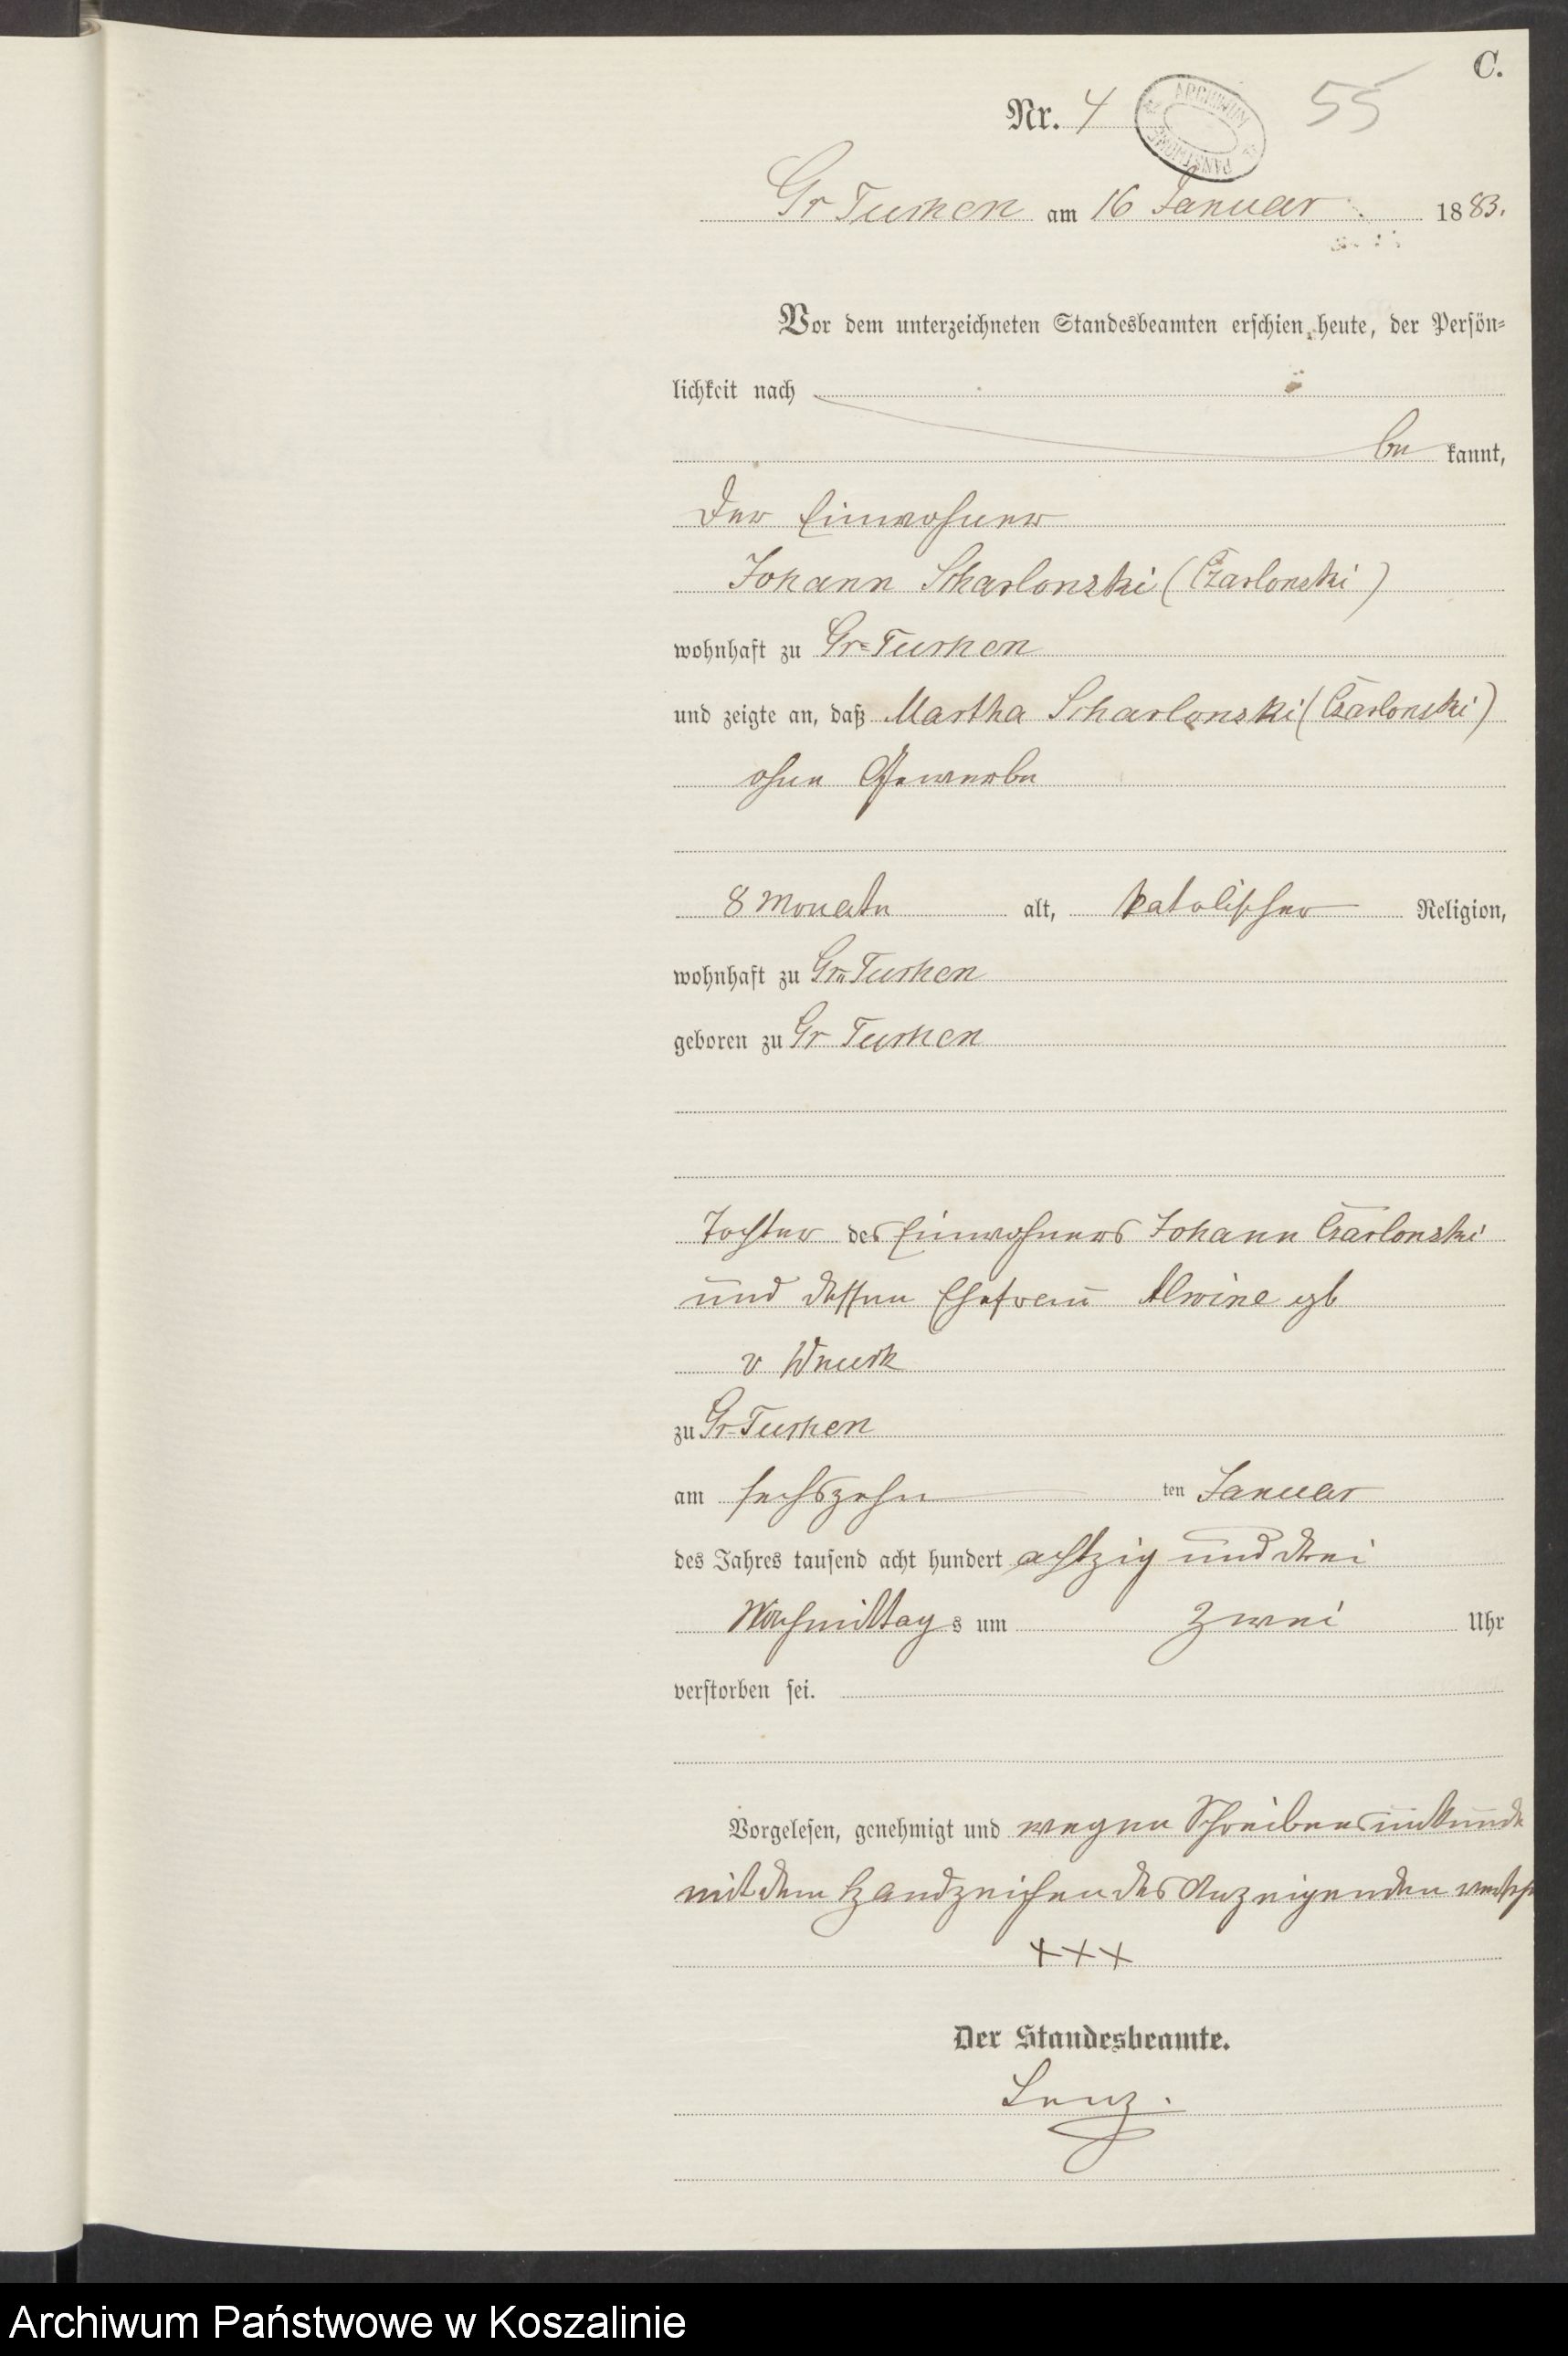 C.
Nr. 4
ARCHIWUM PAŃSTWOWE
55
Gr Tuchen am 16 Januar 1883.
Vor dem unterzeichneten Standesbeamten erschien heute, der Persön-
lichkeit nach
be kannt,
der Einwohner
Johann Scharlonski (Czarlonski)
wohnhaft zu Gr-Tuchen
und zeigte an, daß Martha Scharlonski (Czarlonski)
ohne Gewerbe
8 Monate alt, katolischer Religion,
wohnhaft zu Gr. Tuchen
geboren zu Gr Tuchen
Tochter des Einwohners Johann Czarlonski
und dessen Ehefrau Alwine geb
v Wnuck
zu Gr-Tuchen
am sechszehn ten Januar
des Jahres tausend acht hundert achtzig und drei
Nachmittag s um zwei Uhr
verstorben sei.
Vorgelesen, genehmigt und wegen Schreibensunkunde
mit dem Handzeichen des Anzeigenden
+++
Der Standesbeamte.
Lenz.
Archiwum Państwowe w Koszalinie